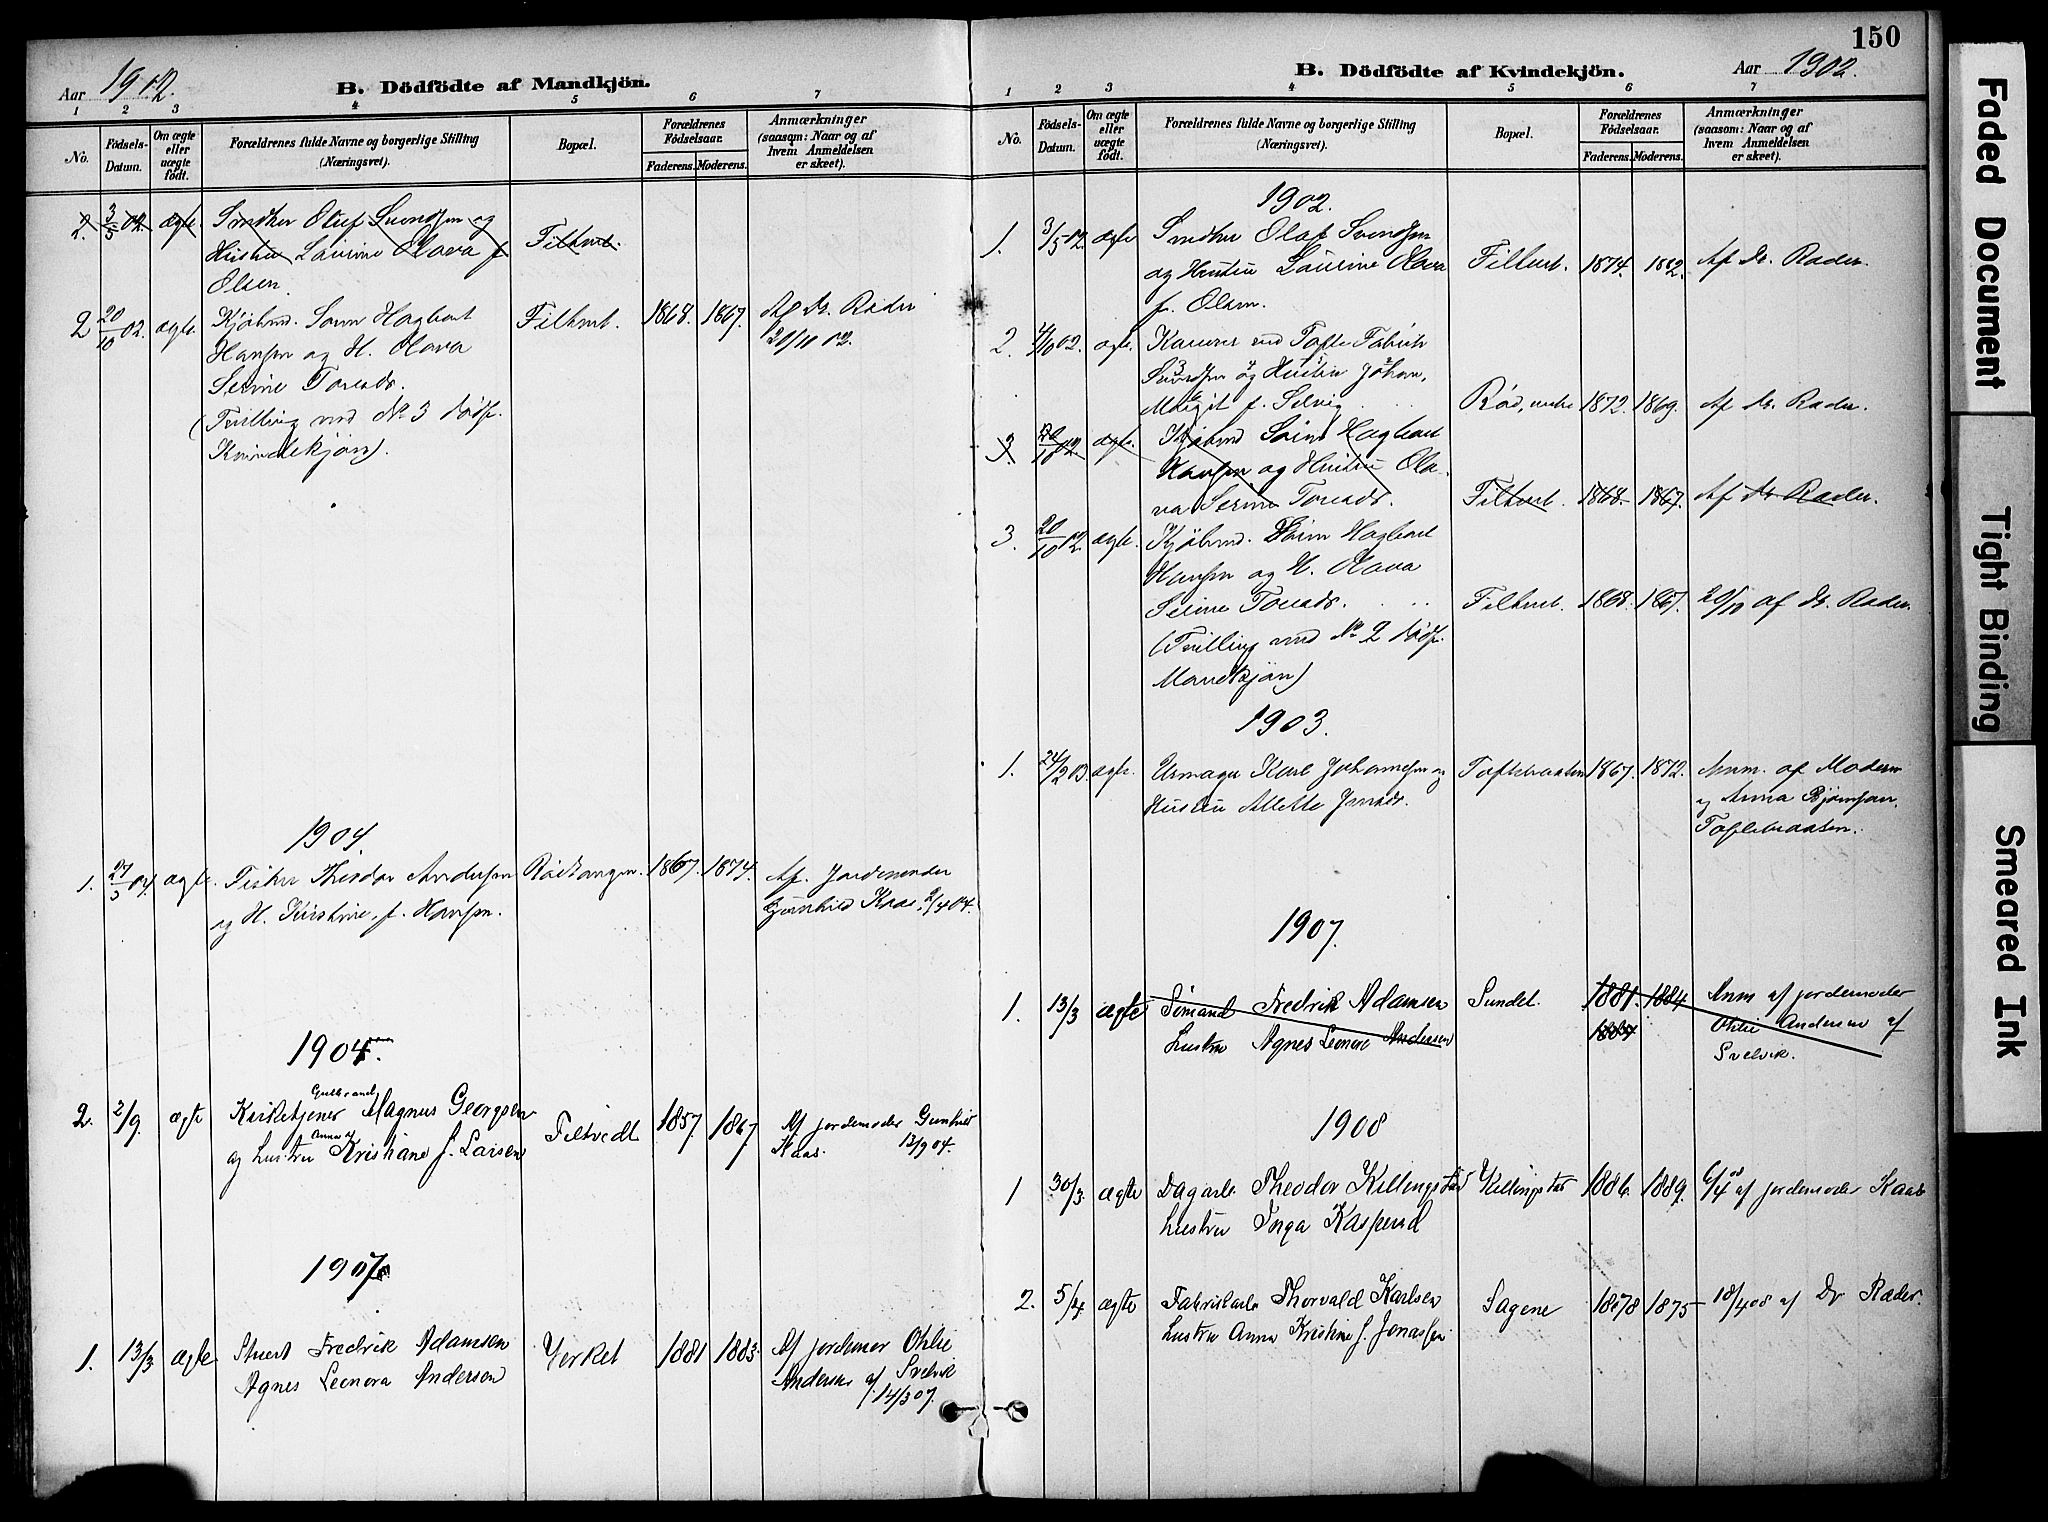 150
Aar 1902.
B. Dödfödte af Mandkjön.
1 2 3 4 5 6 7
No.
Födsels-Datum.
Om ægte eller uægte födt.
Forældrenes fulde Navne og borgerlige Stilling
(Næringsvei).
Bopæl.
Forældrenes Födselsaar.
Faderens. Moderens.
Anmærkninger
(saasom: Naar og af
hvem Anmeldelsen
er skeet).
2. 3/5 02. ægte. Snedker Oluf Svendsen og
Hustru Laurine Olava f. Filtvet.
Olsen.
2 20/10 02. ægte. Kjöbmd. Sören Hagbart Filtvet. 1868. 1867. Af Dr. Räder
Hansen og H. Olava 20/10 02.
Serine Toresdr.
(Tvilling med No 3 dødf.
Kvindekjön).
1904.
1. 27/3 04. ægte. Fisker Theodor Andersen Rödtangen. 1867. 1874. Af Jordemoder
og H. Kristine f. Hansen. Gunhild Kaas 2/4 04.
1904.
Gulbrand
2. 2/9. ægte Kirketjener Magnus Georgsen Filtvedt 1857. 1867 Af jordemoder Gunhild
Anna
og hustru Kristiane f. Larsen Kaas. 13/9 04.
1907
1. 13/3 ægte Stuert Fredrik Adamsen Verket 1881 1883. Af jordemor Othlie
Agnes Leonora Andersen Andersen af Svelvik
14/3 07.
B. Dödfödte af Kvindekjön.
Aar 1902.
1 2 3 4 5 6 7
No.
Födsels-Datum.
Om ægte eller uægte födt.
Forældrenes fulde Navne og borgerlige Stilling
(Næringsvei).
Bopæl.
Forældrenes Födselsaar.
Faderens. Moderens.
Anmærkninger
(saasom: Naar og af
hvem Anmeldelsen
er skeet).
1902.
1. 3/5 02 ægte Snedker Olaf Svendsen
og Hustru Laurine Olava Filtvet. 1874. 1882. Af Dr. Räder.
f. Olsen.
2. 4/10 02. ægte. ved Tofte Fabrik
Svendsen og Hustru Johan.
Margit f. Selvig Rød, 1872. 1869. Af Dr. Räder.
3. 20/10 02. ægte. Kjöbmd Sören Hagbart
Hansen og Hustru Ola-
va Serine Toresdr. Filtvet. 1868. 1867. Af Dr Räder.
3. 20/10 02. ægte. Kjöbmd. Sören Hagbart
Hansen og H. Olava
Serine Toresdr. Filtvet. 1868. 1867. 20/10 af Dr. Räder.
(Tvilling med No 2 dødf.
Mandkjön)
1903.
1. 24/2 03 ægte. Urmager Karl Johannesen og Toftebraaten 1867. 1872. Anm. af Moderen
Hustru Alette Jensdr. og Anna Björnsen.
Toftebraaten.
1907.
1. 13/3 ægte Sömand Fredrik Adamsen Sundet. 1881. 1884 Anm af jordemoder
hustru Agnes Leonore Andersen 1884 Othlie Andersen af
Svelvik.
1908
1 30/3 ægte Dagarb. Theodor Killingstad Killingstad 1886. 1889. 6/4 08 af jordemoder Kaas
hustru Inga Kasperud
2. 5/4 ægte Fabrikarb. Thorvald Karlsen Sagene 1878 1875 18/4 08 af Dr Ræder.
hustru Anna Kristine f. Jonassen
Faded Document
Tight Binding
Smeared Ink